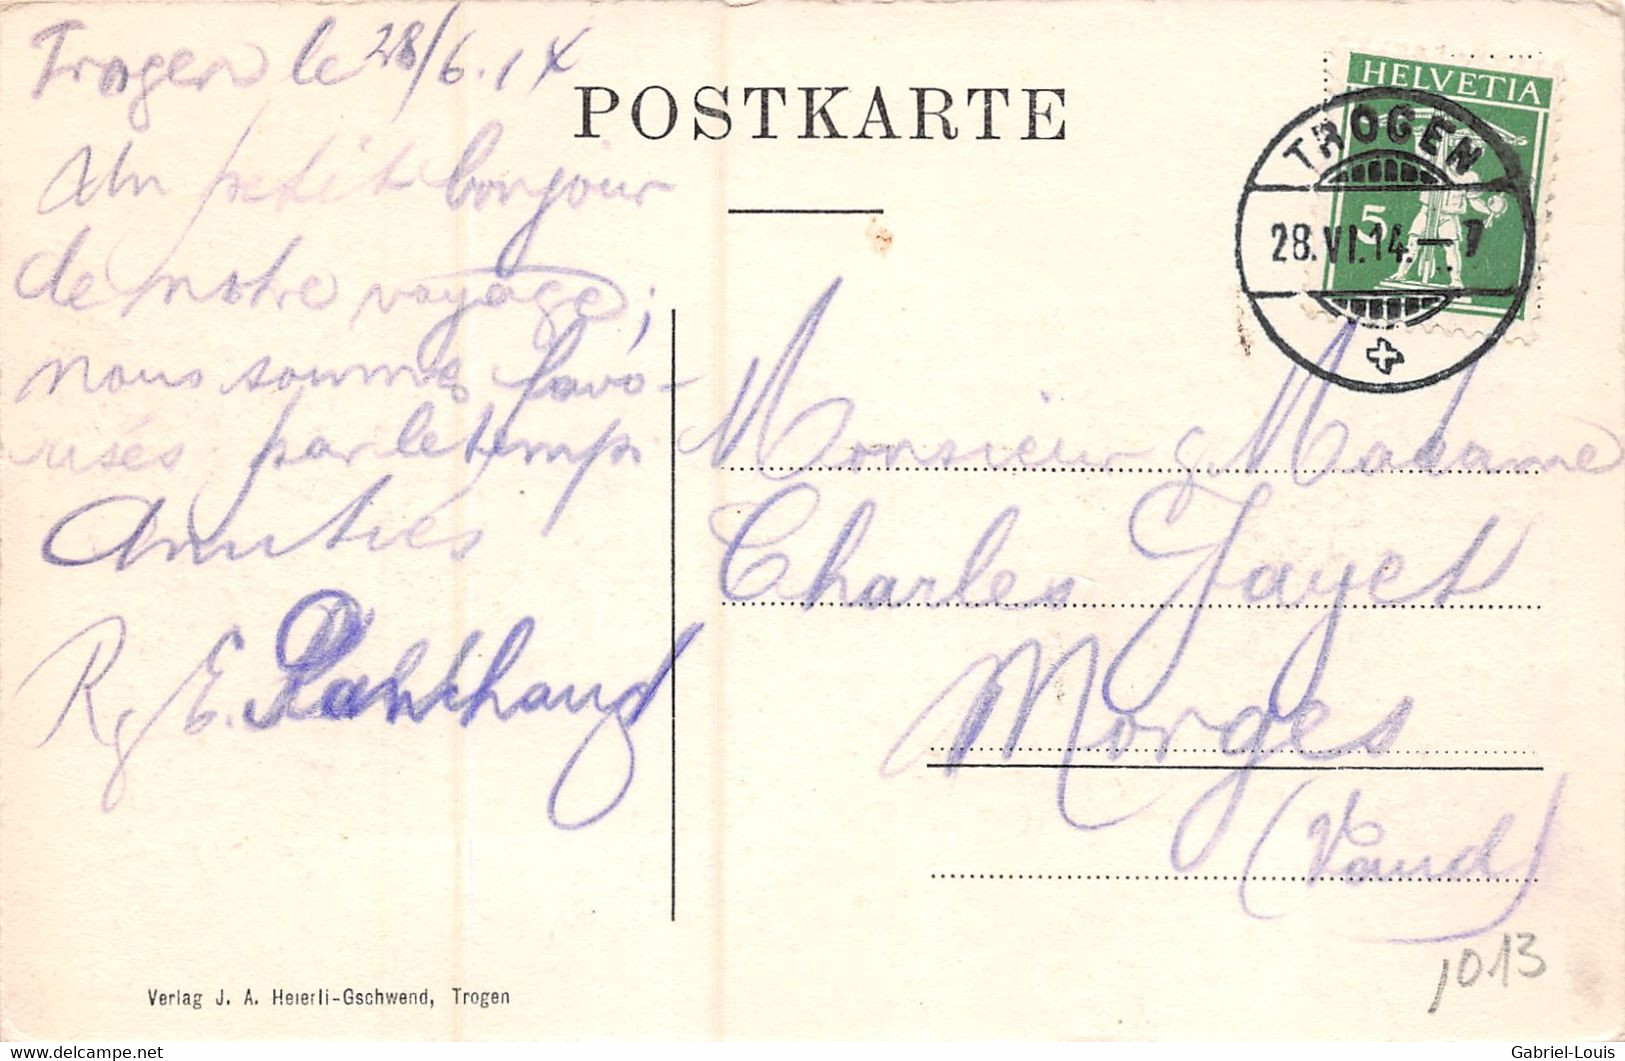 Trogen le 28/6.14
Un petit bonjour
de notre voyage,
nous sommes favo-
risés par le temps
Amitiés
R & E. Panchaud
POSTKARTE
HELVETIA
5
TROGEN
28.VI.14.-7
Monsieur & Madame
Charles Jayet
Morges
(Vaud)
1013
Verlag J. A. Heierli-Gschwend, Trogen
delcampe.net
Gabriel-Louis